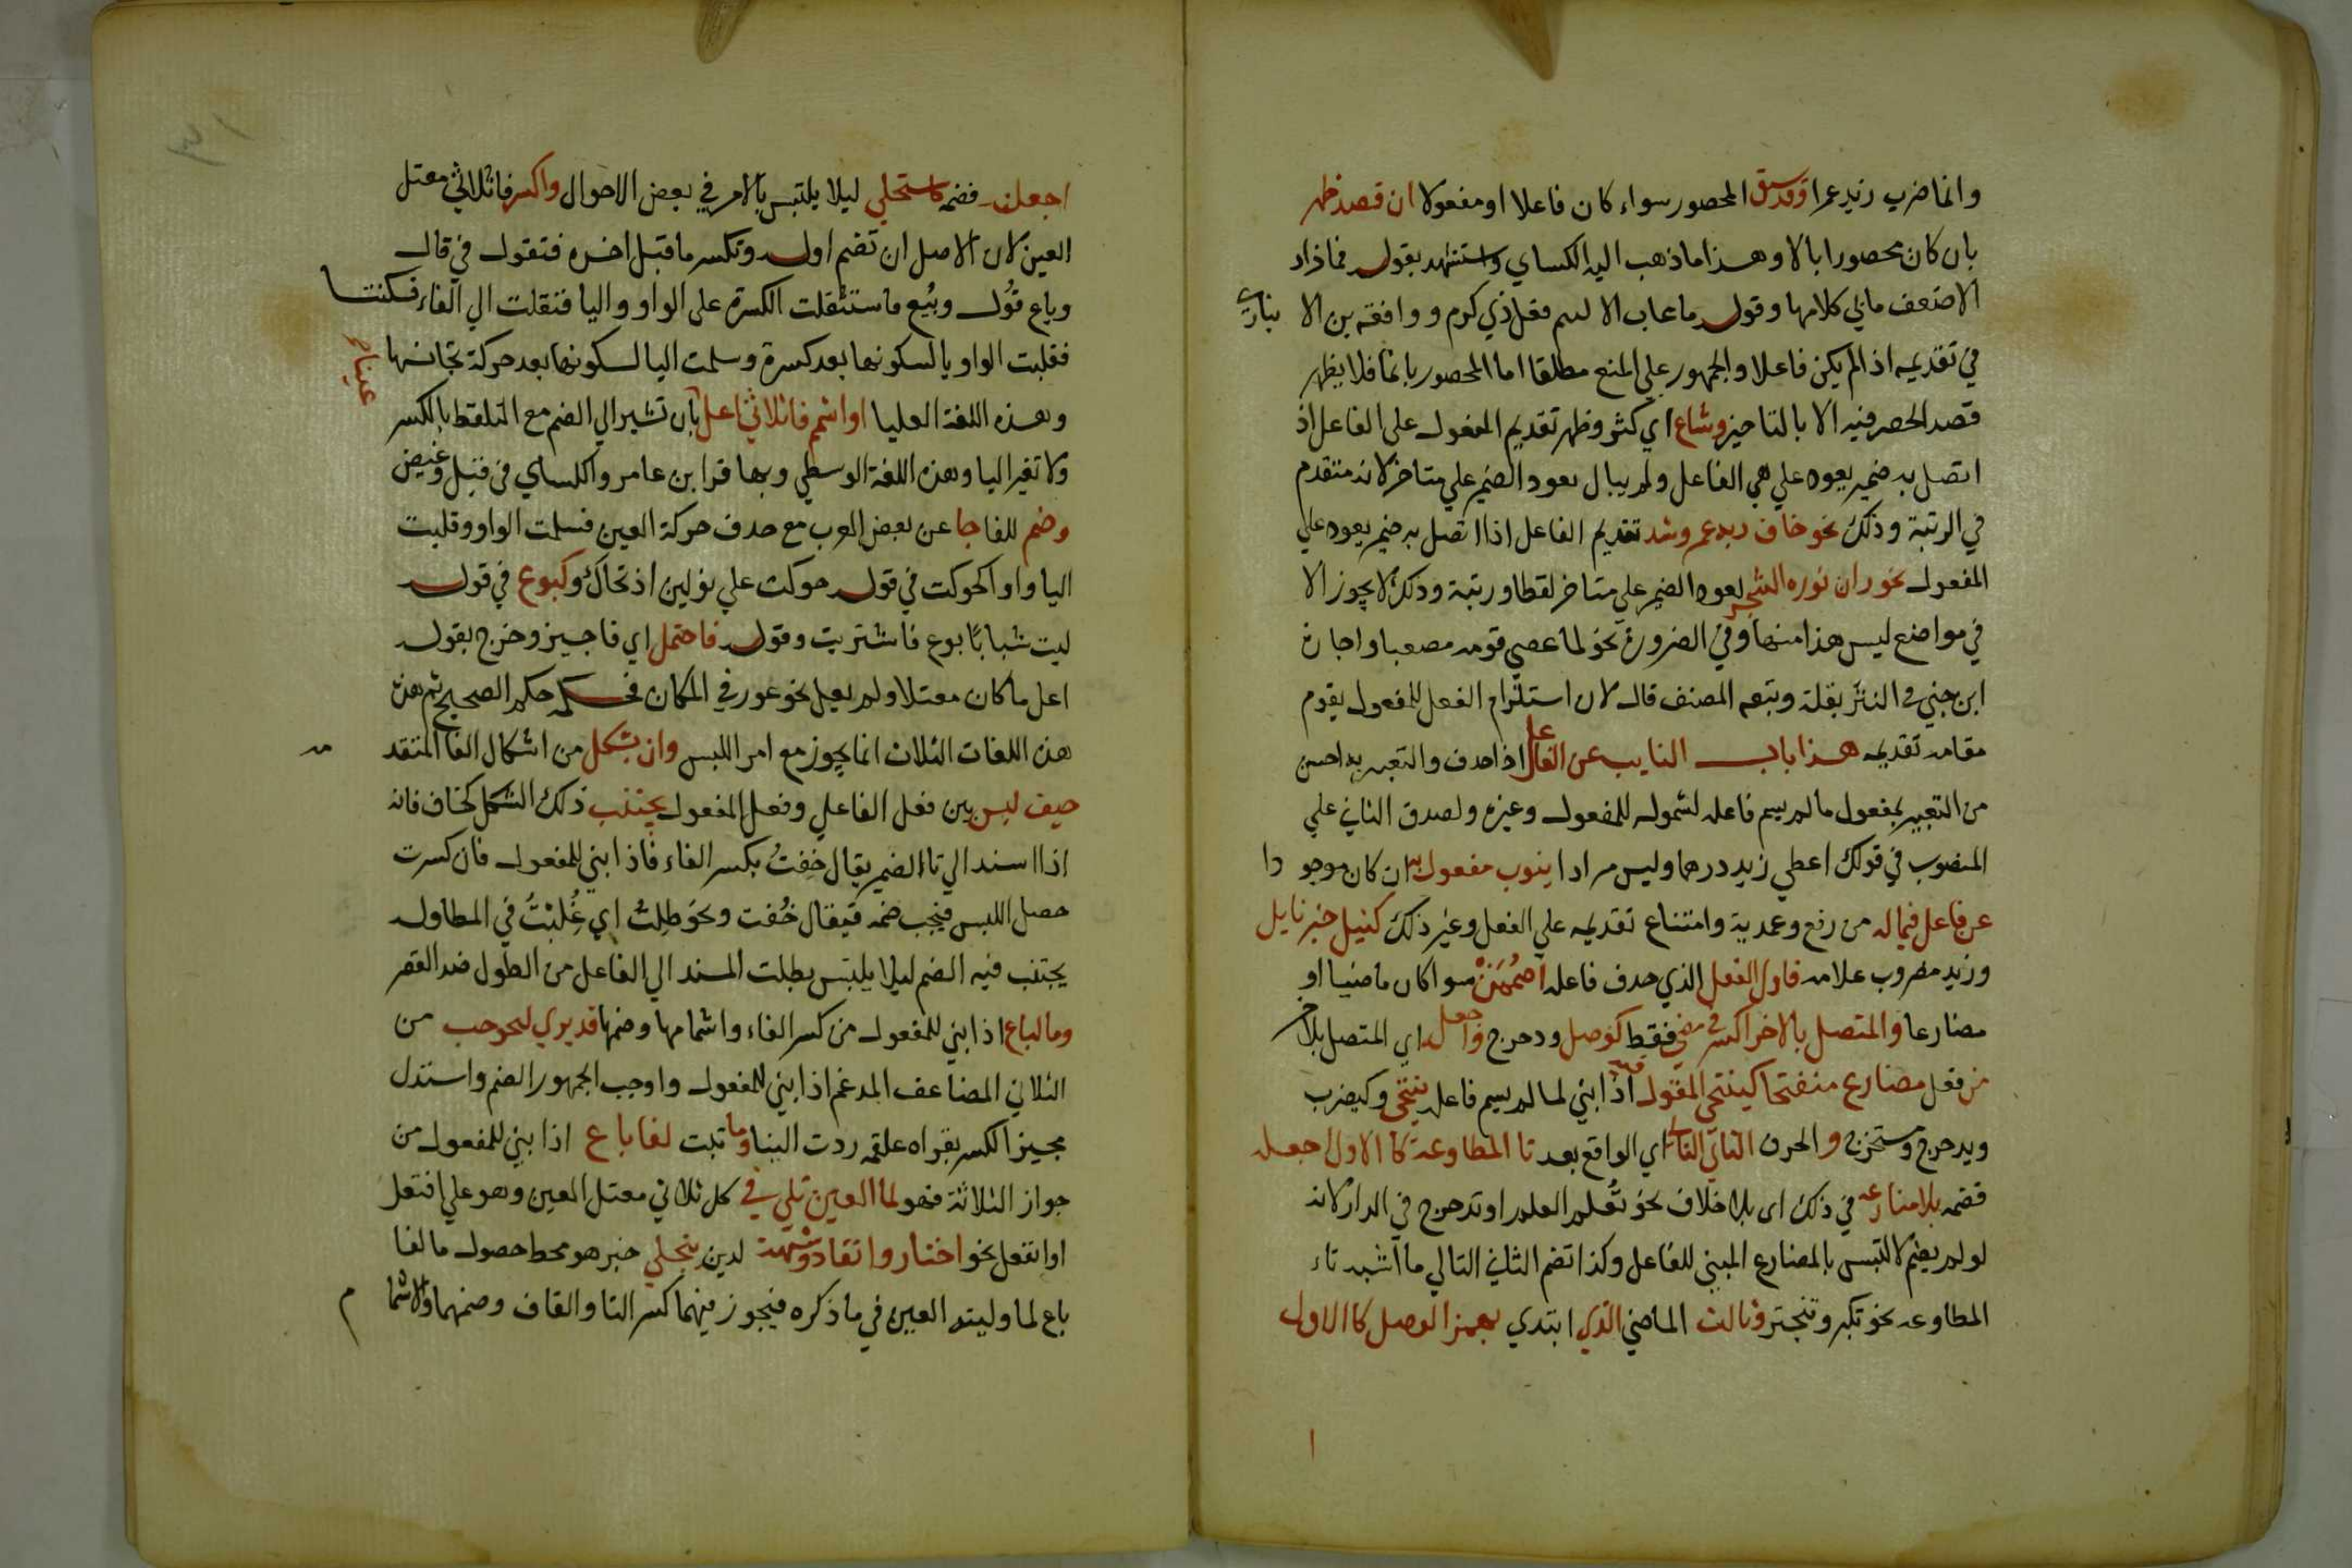 وانما ضرب زيد عمرا وقد يسبق المحصور سواء كان فاعلا او مفعولا ان قصد ظهر
بان كان محصورا بالا وهذا ما ذهب اليه الكساي واستشهد بقوله فما زاد
الا ضعف مابي كلامها وقوله ما عاب الا لسم فعل ذي كرم ووافقه بن الا نباري
في تقديمه اذا لم يكن فاعلا والجمهور علي المنع مطلقا اما المحصور بانما فلا يظهر
قصد الحصر فيه الا بالتاخير وشاع اي كثر وظهر تقديم المفعول على الفاعل اذ
اتصل به ضمير يعود علي الفاعل ولم يبال بعود الضمير علي متاخر لانه متقدم
في الرتبة وذلك نحو خاف ربه عمر وشد تقديم الفاعل اذا اتصل به ضمير يعود علي
المفعول نحو زان نوره الشجر لعود الضمير علي متاخر لفظا ورتبة وذلك لا يجوز الا
في مواضع ليس هذا منها وفي الضرورة نحو لما عصي قومه مصعبا واجازه
ابن جني في النثر بقلة وتبعه المصنف قال لان استلزام الفعل للمفعول يقوم
مقام تقديمه هذا باب النايب عن الفاعل اذا حدف والتعبير به احسن
من التعبير بمفعول ما لم يسم فاعله لشموله للمفعول وغيره ولصدق الثاني علي
المنصوب في قولك اعطي زيد درهما وليس مرادا ينوب مفعول به ان كان موجودا
عن فاعل فيما له من رفع وعمدية وامتناع تقديمه علي الفعل وغير ذلك كنيل خير نايل
وزيد مضروب غلامه فاول الفعل الذي حدف فاعله اضممن سوا كان ماضيا او
مضارعا والمتصل بالاخر اكسر في مضي فقط كوصل ودحرج واجعله اي المتصل بالاخر
من فعل مضارع منفتحا كينتحي المقول فيه اذا بني لما لم يسم فاعله ينتحى وكيضرب
ويدحرج ويستخرج والحرف الثاني التالي اي الواقع بعد تا المطاوعة كالاول اجعله
فضمه بلا منازعه في ذلك اي بلا خلاف نحو تعلم العلم اوتدحرج في الدار لانه
لو لم يضم لالتبس بالمضارع المبني للفاعل وكذا تضم الثاني التالي ما اشبه تاء
المطاوعه نحو تكبر وتبختر وثالث الماضي الذي ابتدي بهمز الوصل كالاول
اجعلنه فضمه كاستحلي ليلا يلتبس بالامر في بعض الاحوال واكسر فا ثلاثي معتل
العين لان الاصل ان تضم اوله وتكسر ما قبل اخره فتقول في قال
وباع قول وبيع فاستثقلت الكسرة على الواو واليا فنقلت الي الفاء فسكنتا
فقلبت الواو يا لسكونها بعد كسرة وسلمت اليا لسكونها بعد حركة تجانسها
وهذه اللغة العليا او اشمم فا ثلاثي اعل عينا بان تشير الي الضم مع التلفظ بالكسر
ولا تغير اليا وهذه اللغة الوسطي وبها قرا ابن عامر والكساي في قيل وغيض
وضم للفا جا عن بعض العرب مع حدف حركة العين فسلمت الواو وقلبت
اليا واوا كحوكت في قوله حوكت علي نولين اذ تحاك وكبوع في قوله
ليت شبابا بوع فاشتريت وقوله فاحتمل اي فاجيز وخرج بقوله
اعل ما كان معتلا ولم يعل نحو عور في المكان فحكمه حكم الصحيح ثم هذه
هذه اللغات الثلاث انما يجوز مع امر اللبس وان بشكل من اشكال الفا المتقدمه
خيف لبس بين فعل الفاعلي وفعل المفعول يجتنب ذلك الشكل كخاف فانه
اذا اسند الي تا الضمير يقال خفت بكسر الفاء فاذا بني للمفعول فان كسرت
حصل اللبس فيجب ضمه فيقال خفت ونحو طلت اي غلبت في المطاولة
يجتنب فيه الضم ليلا يلتبس بطلت المسند الي الفاعل من الطول ضد القصر
وما لباع اذا بني للمفعول من كسر الفاء واشمامها وضمها قد يري لنحو حب من
الثلاثي المضاعف المدغم اذا بني للمفعول واوجب الجمهور الضم واستدل
مجيز الكسر بقراه علقمه ردت الينا وما ثبت لفا باع اذا بني للمفعول من
جواز الثلاثة فهو لما العين تلي في كل ثلاثي معتل العين وهو علي افتعل
او انفعل نحو اختار وانقاد وشبهه لدين ينجلي خبر هو محط حصول ما لفا
باع لما وليته العين في ما ذكره فيجوز فيهما كسر التا والقاف وضمهما والاشمام